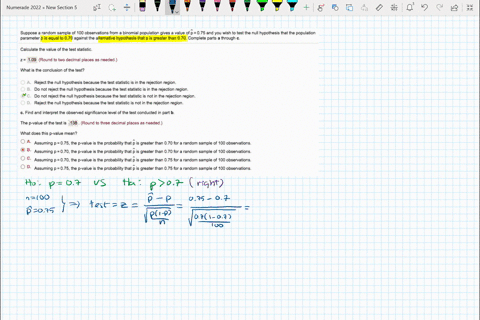 Numerade 2022 > New Section 5
Suppose a random sample of 100 observations from a binomial population gives a value of p̂ = 0.75 and you wish to test the null hypothesis that the population
parameter p is equal to 0.70 against the alternative hypothesis that p is greater than 0.70. Complete parts a through c.
Calculate the value of the test statistic.
z = 1.09 (Round to two decimal places as needed.)
What is the conclusion of the test?
A. Reject the null hypothesis because the test statistic is in the rejection region.
B. Do not reject the null hypothesis because the test statistic is in the rejection region.
C. Do not reject the null hypothesis because the test statistic is not in the rejection region.
D. Reject the null hypothesis because the test statistic is not in the rejection region.
c. Find and interpret the observed significance level of the test conducted in part b.
The p-value of the test is .138 (Round to three decimal places as needed.)
What does this p-value mean?
A. Assuming p = 0.75, the p-value is the probability that p̂ is greater than 0.70 for a random sample of 100 observations.
B. Assuming p = 0.70, the p-value is the probability that p̂ is greater than 0.70 for a random sample of 100 observations.
C. Assuming p = 0.70, the p-value is the probability that p̂ is greater than 0.75 for a random sample of 100 observations.
D. Assuming p = 0.75, the p-value is the probability that p̂ is greater than 0.75 for a random sample of 100 observations.
Ho: p = 0.7 vs Ha: p > 0.7 (right)
n=100
p̂=0.75 } ⇒ test = z = (p̂ − p) / √(p(1-p)/n) = (0.75 − 0.7) / √(0.7(1−0.7)/100) =